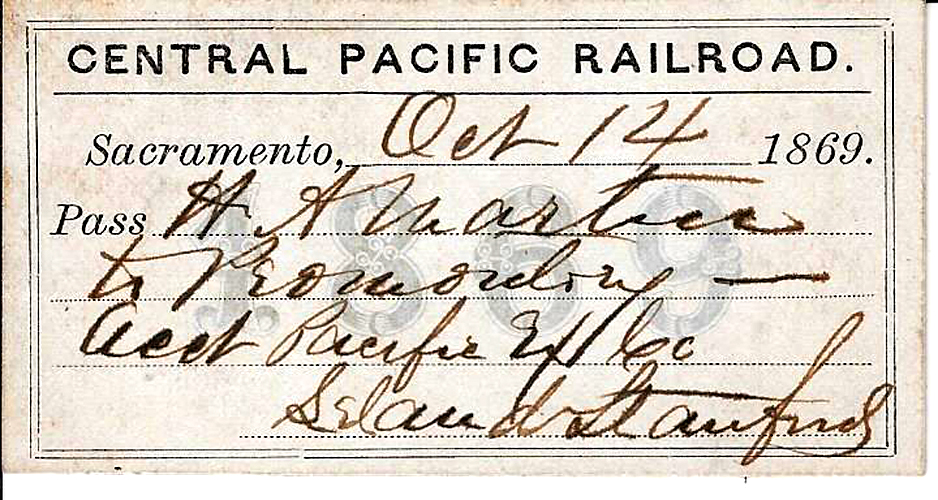 CENTRAL PACIFIC RAILROAD.
Sacramento, Oct 14 1869.
Pass H A Martin
to Promontory —
Acct Pacific Ex Co
Leland Stanford
1869